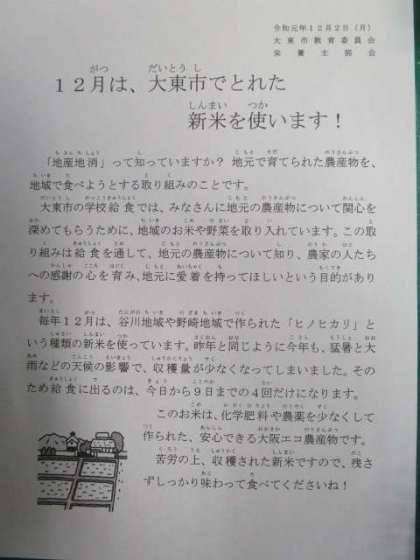 令和元年12月2日（月）
大東市教育委員会
栄養士協会
12月は、大東市でとれた
新米を使います！
「地産地消」って知っていますか？地元で育てられた農産物を、
地域で食べようとする取り組みのことです。
大東市の学校給食では、みなさんに地元の農産物について関心を
深めてもらうために、地域のお米や野菜を取り入れています。この取
り組みは給食を通して、地元の農産物について知り、農家の人たち
への感謝の心を育み、地元に愛着を持ってほしいという目的があり
ます。
毎年12月は、谷川地域や野崎地域で作られた「ヒノヒカリ」と
いう種類の新米を使っています。昨年と同じように今年も、猛暑と大
雨などの天候の影響で、収穫量が少なくなってしまいました。そのた
め給食に出るのは、今日から9日までの4回だけになります。
このお米は、化学肥料や農薬を少なくして
作られた、安心できる大阪エコ農産物です。
苦労の上、収穫された新米ですので、残さ
ずしっかり味わって食べてくださいね！